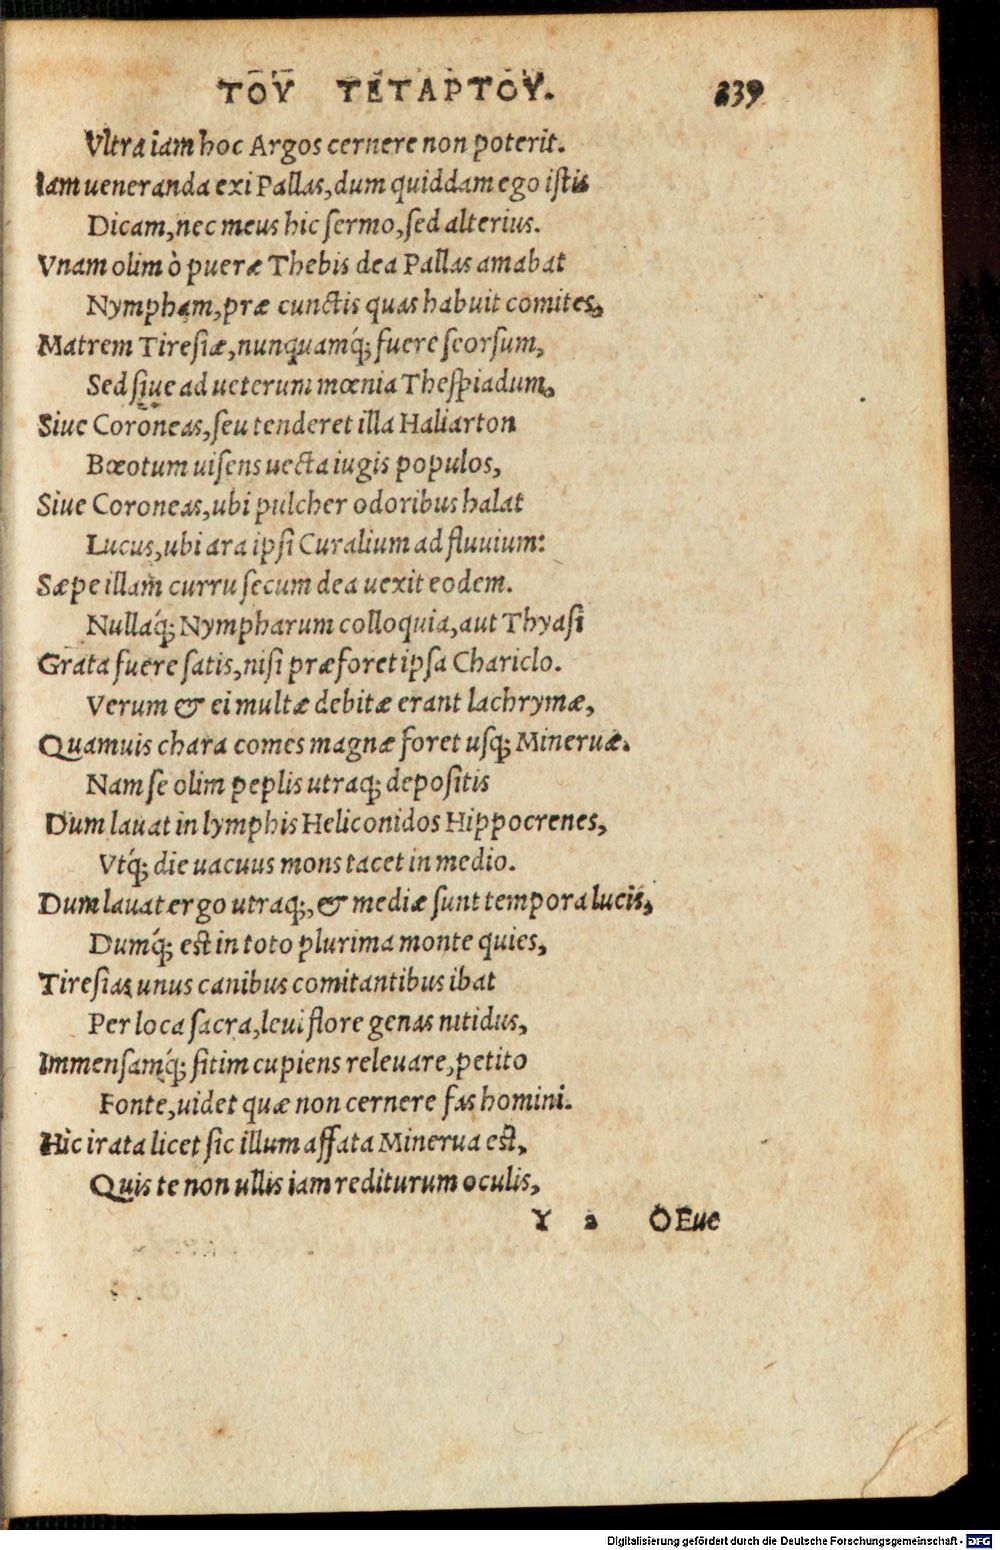 ΤΟΥ ΤΕΤΑΡΤΟΥ. 339
Vltra iam hoc Argos cernere non poterit.
Iam ueneranda exi Pallas, dum quiddam ego istis
Dicam, nec meus hic sermo, sed alterius.
Vnam olim ò pueræ Thebis dea Pallas amabat
Nympham, præ cunctis quas habuit comites,
Matrem Tiresiæ, nunquamq́; fuere seorsum,
Sed siue ad ueterum mœnia Thespiadum,
Siue Coroneas, seu tenderet illa Haliarton
Bœotum uisens uecta iugis populos,
Siue Coroneas, ubi pulcher odoribus halat
Lucus, ubi ara ipsi Curalium ad fluuium:
Sæpe illam curru secum dea uexit eodem.
Nullaq́; Nympharum colloquia, aut Thyasi
Grata fuere satis, nisi præforet ipsa Chariclo.
Verum & ei multæ debitæ erant lachrymæ,
Quamuis chara comes magnæ foret usq; Mineruæ.
Nam se olim peplis utraq; depositis
Dum lauat in lymphis Heliconidos Hippocrenes,
Vtq́; die uacuus mons tacet in medio.
Dum lauat ergo utraq;, & mediæ sunt tempora lucis,
Dumq́; est in toto plurima monte quies,
Tiresias unus canibus comitantibus ibat
Per loca sacra, leui flore genas nitidus,
Immensamq́; sitim cupiens releuare, petito
Fonte, uidet quæ non cernere fas homini.
Hìc irata licet sic illum affata Minerua est,
Quis te non ullis iam rediturum oculis,
Y 2 O Eue
Digitalisierung gefördert durch die Deutsche Forschungsgemeinschaft - DFG